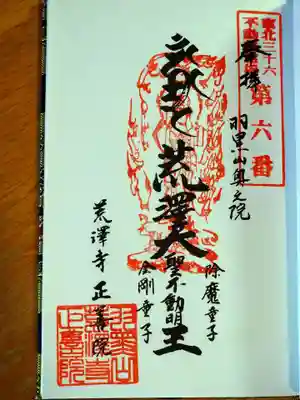 東北三十六
不動尊霊場
第六番
奉拝
羽黒山奥之院
荒澤大聖不動明王
除魔童子
金剛童子
荒澤寺 正善院
羽黒山
荒澤寺
正善院